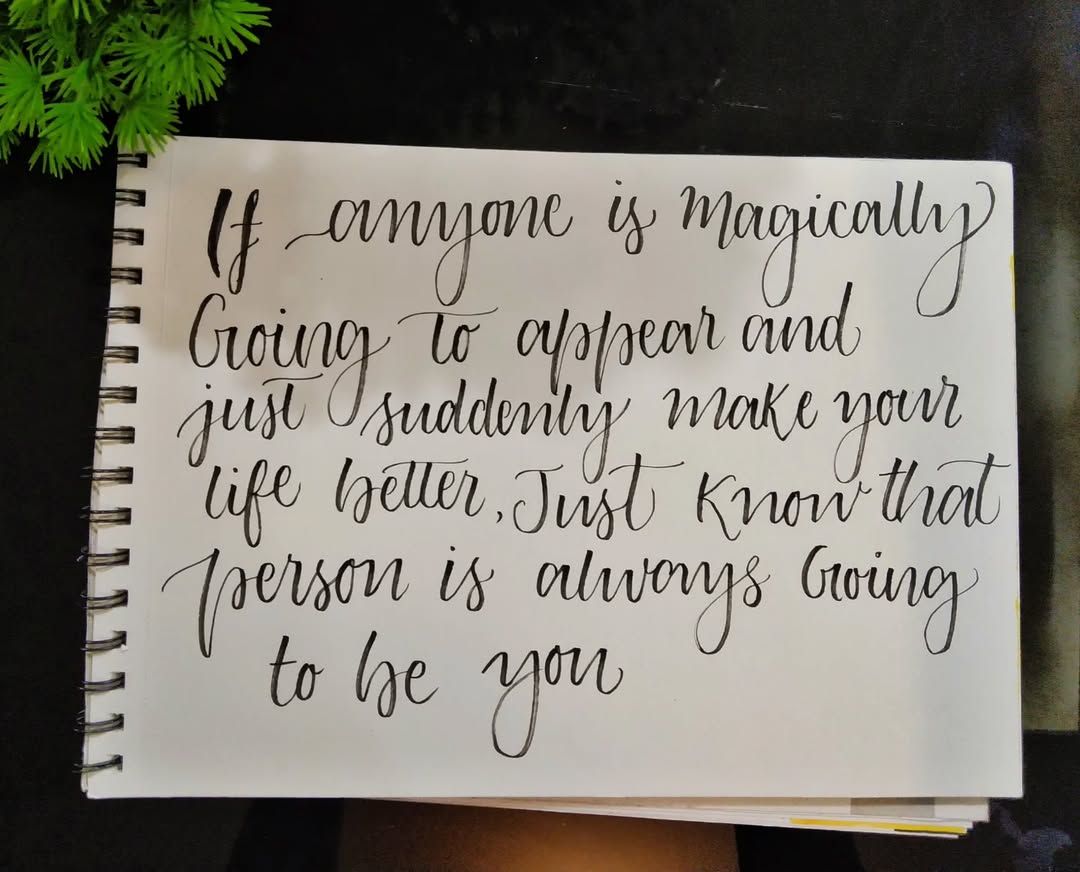 If anyone is magically
Going to appear and
just suddenly make your
life better, Just Know that
person is always Going
to be you